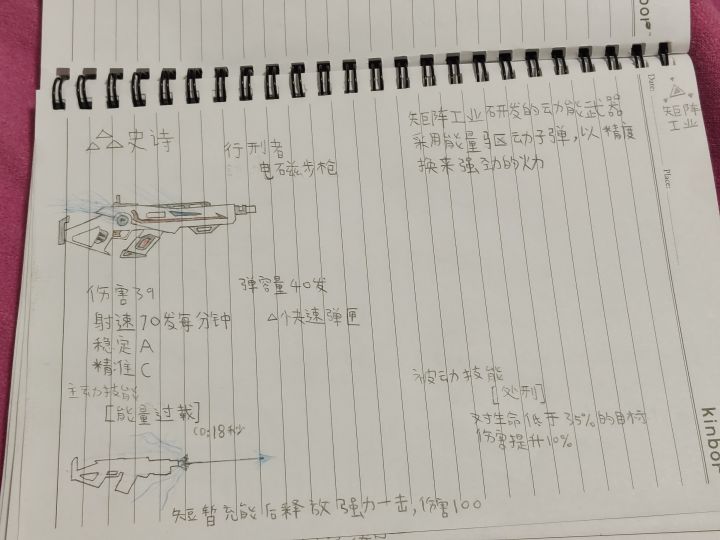 史诗
行刑者
电磁步枪
矩阵工业研发的动能武器
采用能量驱动子弹，以精度
换来强劲的火力
矩阵
工业
Date:
Place:
伤害39
射速70发每分钟
稳定A
精准C
弹容量40发
△快速弹匣
主动技能
[能量过载]
CD:18秒
短暂充能后释放强力一击，伤害100
被动技能
[处刑]
对生命低于35%的目标
伤害提升10%
Kinbor